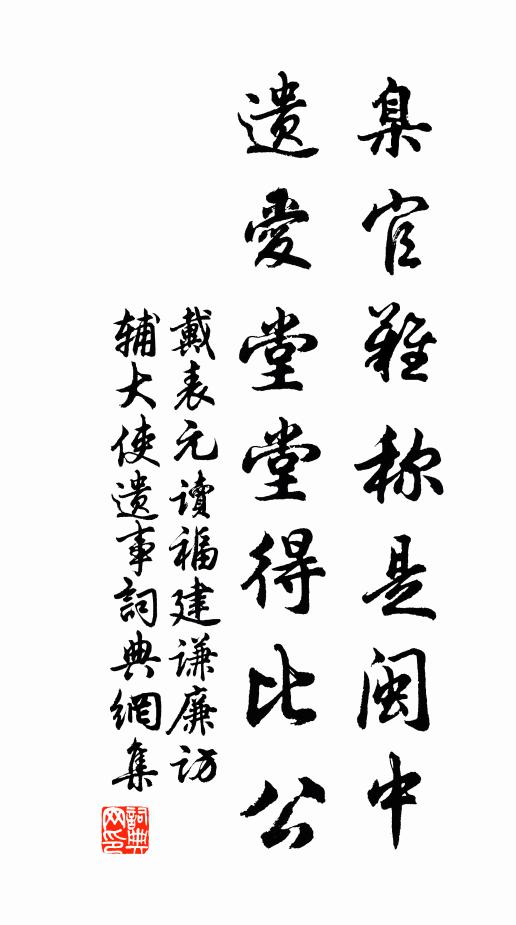 臬官难称是闽中
遗爱堂堂得比公
戴表元读福建谦廉访
辅大使遗事词典网集
词典网印